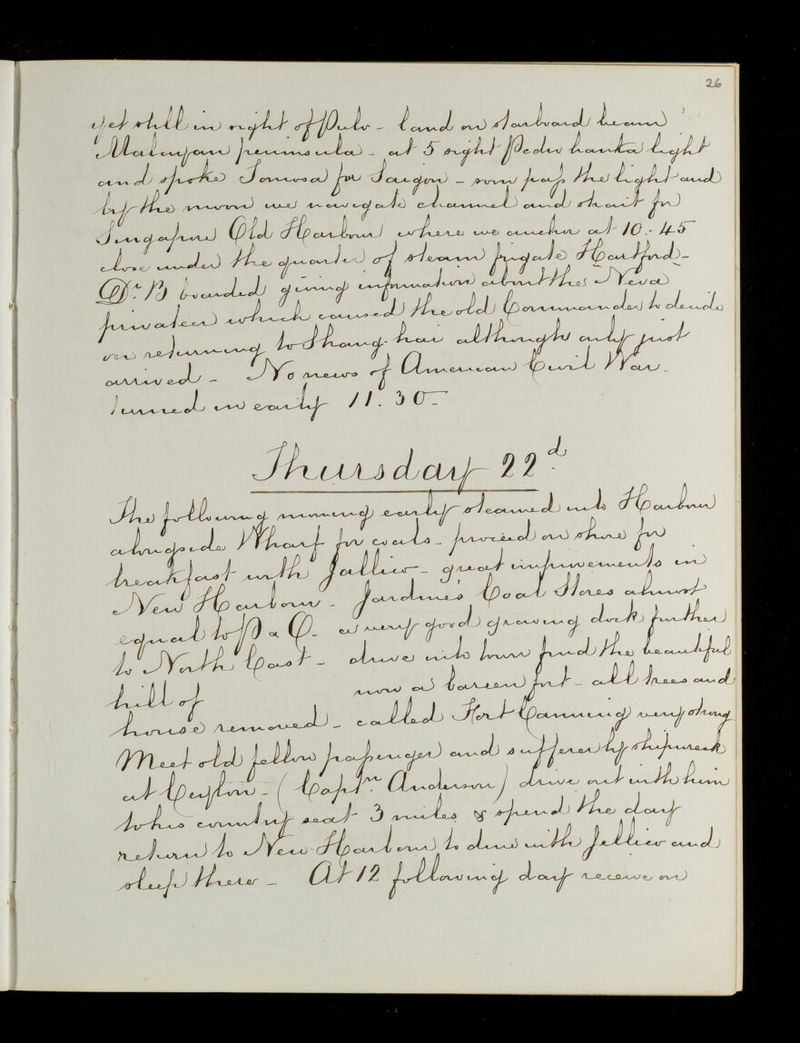 26
yet still in sight of Pulo - land on starboard beam
Malayan peninsula - at 5 sight Pedro banka light
and spoke Tomosa for Saigon - soon pass the light and
by the moon we navigate channel and strait for
Singapore Old Harbour where we anchor at 10.45
close under the quarter of steam frigate Hartford -
Dr. B boarded giving information about the Neva
privateer which caused the old Commander to decide
on returning to Shang-hai although only just
arrived - No news of American Civil War -
turned in early 11.30 -
Thursday 22d.
The following morning early steamed into Harbour
alongside Wharf for coals - proceed on shore for
breakfast with Jellico - great improvements in
New Harbour - Jardine's Coal Stores almost
equal to P & O. - a very good graving dock further
to North East - drive into town find the beautiful
hill of now a barren fort - all trees and
house removed - called Fort Canning very strong
Meet old fellow passenger and sufferer by shipwreck
at Ceylon - (Captn. Anderson) drive out with him
to his country seat 3 miles & spend the day
return to New Harbour to dine with Jellico and
sleep there - At 12 following day receive on